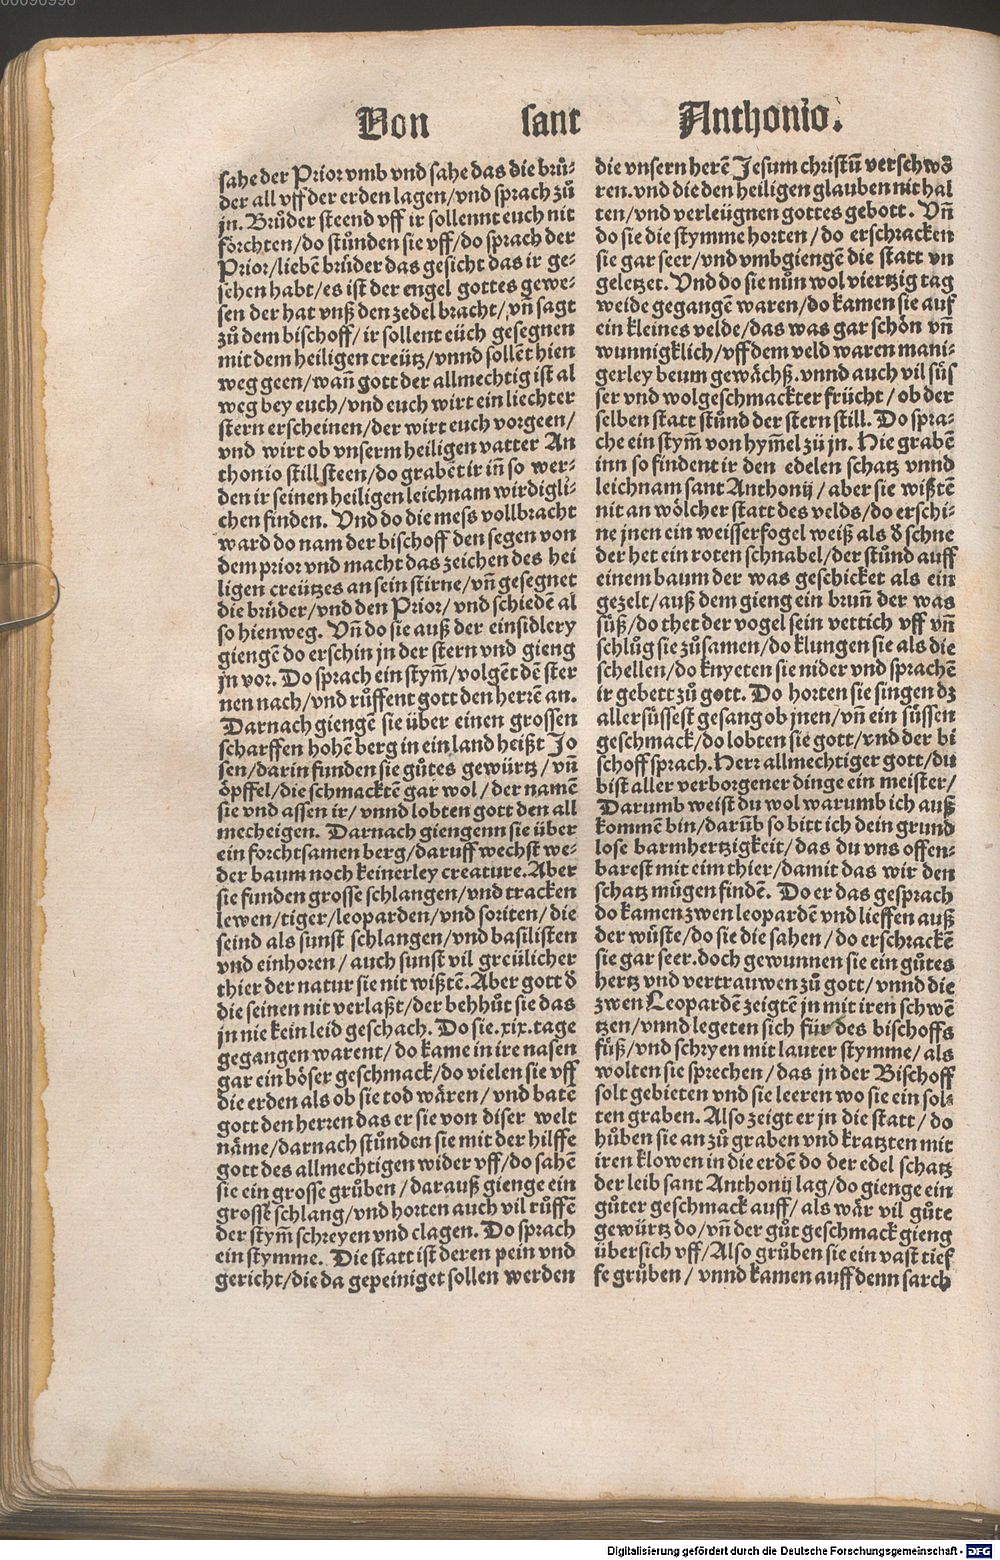 00090996
Von sant Anthonio.
sahe der Prior vmb vnd sahe das die brů-
der all vff der erden lagen/vnd sprach zů
jn. Brůder steend vff ir sollennt euch nit
förchten/do stůnden sie vff/do sprach der
Prior/liebē brůder das gesicht das ir ge-
sehen habt/es ist der engel gottes gewe-
sen der hat vnß den zedel bracht/vñ sagt
zů dem bischoff/ir sollent eüch gesegnen
mit dem heiligen creütz/vnnd sollēt hien
weg geen/wañ gott der allmechtig ist al
weg bey euch/vnd euch wirt ein liechter
stern erscheinen/der wirt euch vorgeen/
vnd wirt ob vnserm heiligen vatter An
thonio still steen/do grabēt ir iñ so wer-
den ir seinen heiligen leichnam wirdigli-
chen finden. Vnd do die mess vollbracht
ward do nam der bischoff den segen von
dem prior vnd macht das zeichen des hei
ligen creützes an sein stirne/vñ gesegnet
die brüder/vnd den Prior/vnd schiedē al
so hienweg. Vñ do sie auß der einsidlery
giengē do erschin jn der stern vnd gieng
jn vor. Do sprach ein stym̄/volgēt dē ster
nen nach/vnd růffent gott den herrē an.
Darnach giengē sie über einen grossen
scharffen hohē berg in ein land heißt Jo
sen/darin funden sie gůtes gewürtz/vñ
öpffel/die schmacktē gar wol/der namē
sie vnd assen ir/vnnd lobten gott den all
mecheigen. Darnach giengenn sie über
ein forchtsamen berg/daruff wechst we-
der baum noch keinerley creature. Aber
sie funden grosse schlangen/vnd tracken
lewen/tiger/leoparden/vnd soriten/die
seind als sunst schlangen/vnd basilisten
vnd einhoren/auch sunst vil greülicher
thier der natur sie nit wißtē. Aber gott d̄
die seinen nit verlaßt/der behhůt sie das
jn nie kein leid geschach. Do sie.xix.tage
gegangen warent/do kame in ire nasen
gar ein böser geschmack/do vielen sie vff
die erden als ob sie tod wären/vnd batē
gott den herren das er sie von diser welt
näme/darnach stůnden sie mit der hilffe
gott des allmechtigen wider vff/do sahē
sie ein grosse grůben/darauß gienge ein
grosse schlang/vnd horten auch vil růffē
der stym̄ schreyen vnd clagen. Do sprach
ein stymme. Die statt ist deren pein vnd
gericht/die da gepeiniget sollen werden
die vnsern herē Jesum christū verschwo
ren.vnd die den heiligen glauben nit hal
ten/vnd verleügnen gottes gebott. Vñ
do sie die stymme horten/do erschracken
sie gar seer/vnd vmbgiengē die statt vn
geletzet. Vnd do sie nůn wol viertzig tag
weide gegangē waren/do kamen sie auf
ein kleines velde/das was gar schön vñ
wunnigklich/vff dem veld waren mani-
gerley beum gewächß.vnnd auch vil süs
ser vnd wolgeschmackter frücht/ob der
selben statt stůnd der stern still. Do spra-
che ein stym̄ von hym̄el zü jn. Hie grabē
inn so findent ir den edelen schatz vnnd
leichnam sant Anthonij/aber sie wißtē
nit an wölcher statt des velds/do erschi-
ne jnen ein weisser fogel weiß als d̄ schne
der het ein roten schnabel/der stůnd auff
einem baum der was geschicket als ein
gezelt/auß dem gieng ein brun̄ der was
süß/do thet der vogel sein vettich vff vñ
schlůg sie zůsamen/do klungen sie als die
schellen/do knyeten sie nider vnd sprachē
ir gebett zů gott. Do horten sie singen dz
allersüssest gesang ob jnen/vñ ein süssen
geschmack/do lobten sie gott/vnd der bi
schoff sprach. Herr allmechtiger gott/du
bist aller verborgener dinge ein meister/
Darumb weist du wol warumb ich auß
kommē bin/darūb so bitt ich dein grund
lose barmhertzigkeit/das du vns offen-
barest mit eim thier/damit das wir den
schatz mügen findē. Do er das gesprach
do kamen zwen leopardē vnd lieffen auß
der wüste/do sie die sahen/do erschrackē
sie gar seer.doch gewunnen sie ein gůtes
hertz vnd vertrauwen zů gott/vnnd die
zwen Leopardē zeigtē jn mit iren schwē
tzen/vnnd legeten sich für des bischoffs
füß/vnd schryen mit lauter stymme/als
wolten sie sprechen/das jn der Bischoff
solt gebieten vnd sie leeren wo sie ein sol-
ten graben. Also zeigt er jn die statt/do
hůben sie an zů graben vnd kratzten mit
iren klowen in die erdē do der edel schatz
der leib sant Anthonij lag/do gienge ein
gůter geschmack auff/als wär vil gůte
gewürtz do/vñ der gůt geschmack gieng
übersich vff/Also grůben sie ein vast tief
fe grůben/vnnd kamen auff denn sarch
Digitalisierung gefördert durch die Deutsche Forschungsgemeinschaft - DFG